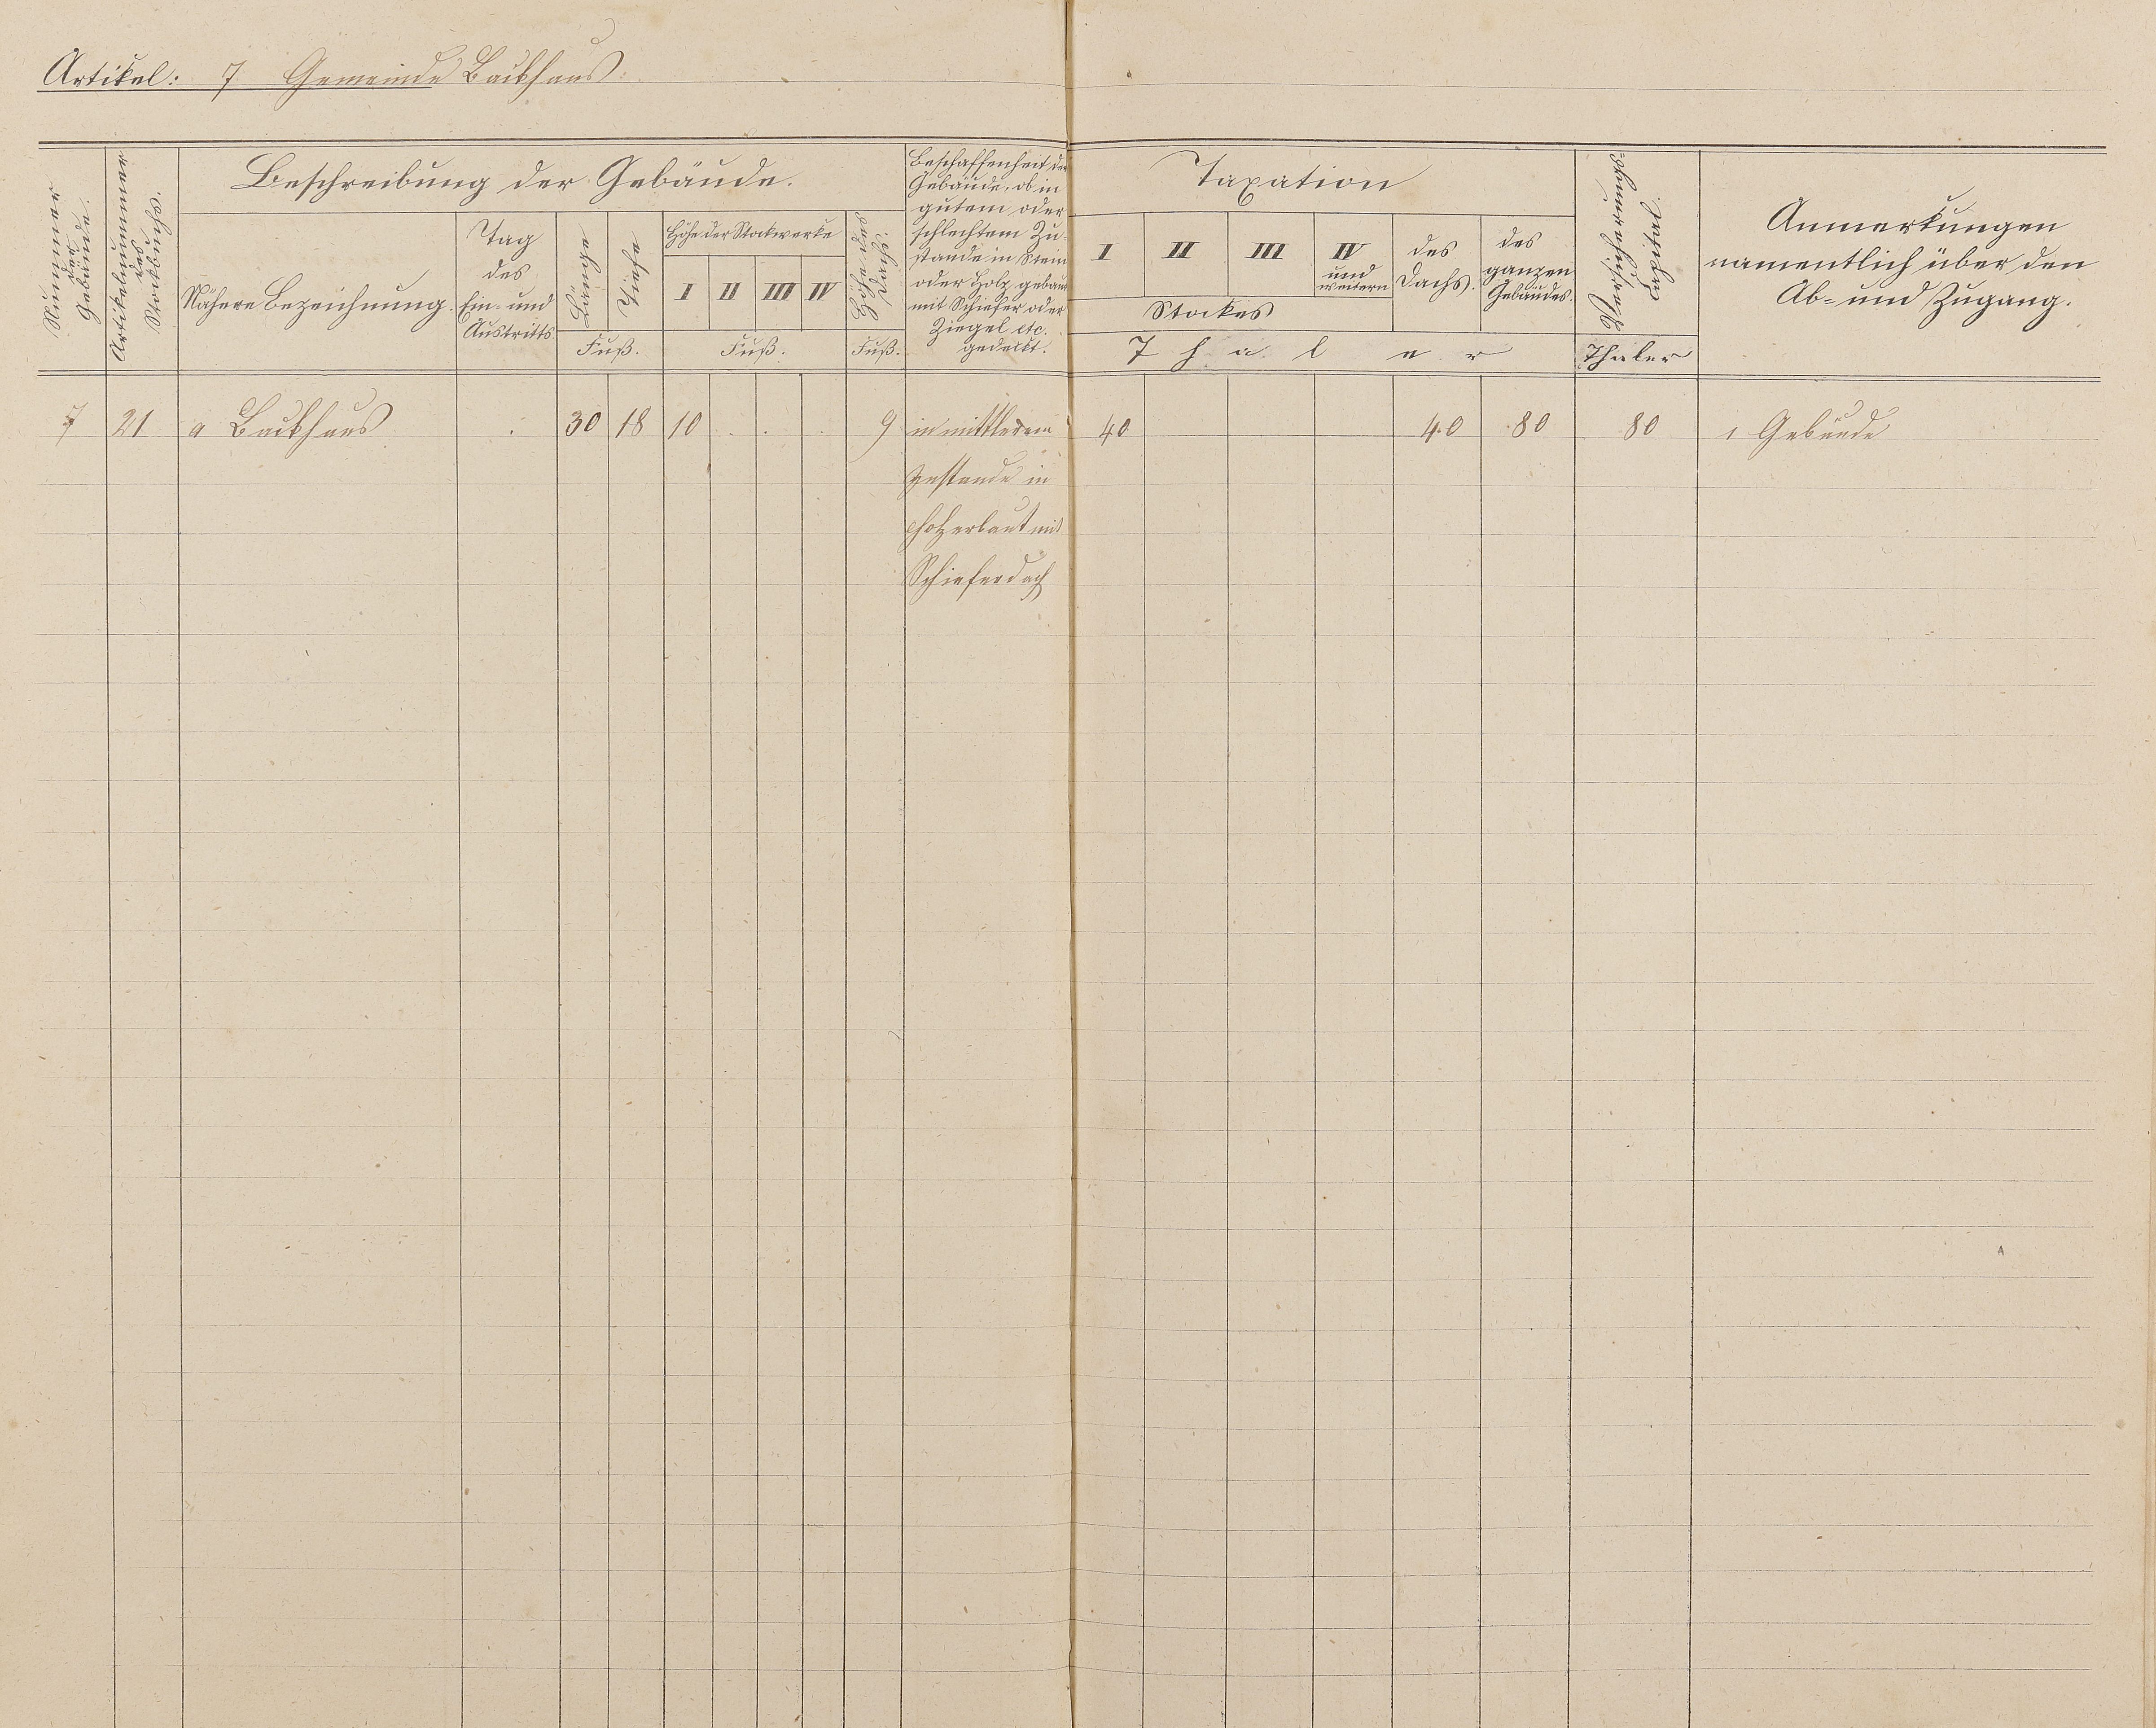 Artikel: 7 Gemeinde Backhaus
Nummer der Gebäude.
Artikelnummer des Stockbuchs.
Beschreibung der Gebäude.
Nähere Bezeichnung.
Tag
des
Ein- und
Austritts
Länge
Tiefe
Fuß.
Höhe der Stockwerke
I II III IV
Fuß.
Höhe des Dachs.
Fuß.
Beschaffenheit der
Gebäude, ob in
gutem oder
schlechtem Zu-
stande in Stein
oder Holz gebaut
mit Schiefer oder
Ziegel etc.
gedeckt.
Taxation
I II III IV
und
weitern
Stockes
des
Dachs.
des
ganzen
Gebäudes.
Thaler
Versicherungs-
Thaler
Anmerkungen
namentlich über den
Ab- und Zugang.
7 21 a Backhaus 30 18 10 9 in mittlerem 40 40 80 80 1 Gebäude
Zustande in
Holz erbaut mit
Schieferdach